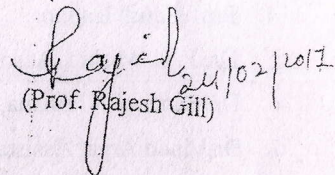 Rajesh 24/02/2017
(Prof. Rajesh Gill)